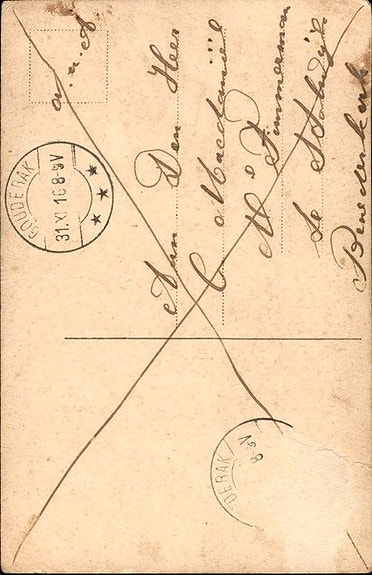 a. u. b.
GOUDERAK
31.XI 16 8-9V
Aan Den Heer
C Macdaniël
M d Timmerman
Te Stolwijk
Benedenkerk
DERAK
8-9V